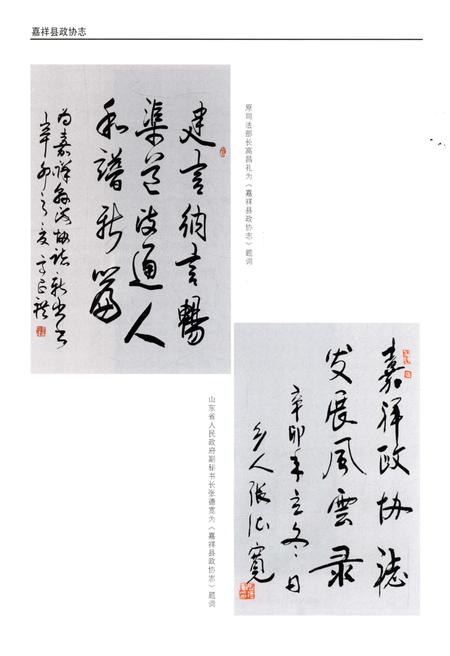 嘉祥县政协志
建言纳言畅
渠道政通人
和谱新篇
为嘉祥县政协志新书出
辛卯之夏高昌礼
原司法部长高昌礼为《嘉祥县政协志》题词
嘉祥政协志
发展风云录
辛卯年立冬日
乡人张德宽
山东省人民政府副秘书长张德宽为《嘉祥县政协志》题词